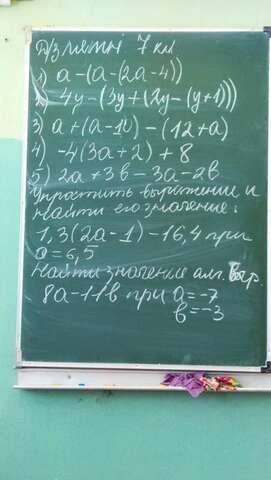 Д/з мет 7 кл
1) a-(a-(2a-4))
2) 4y-(3y+(2y-(y+1)))
3) a+(a-10)-(12+a)
4) -4(3a+2)+8
5) 2a+3b-3a-2b
Упростить выражение и
найти его значение:
1,3(2a-1)-16,4 при
a=6,5
Найти значение алг. выр.
8a-11b при a=-7
b=-3